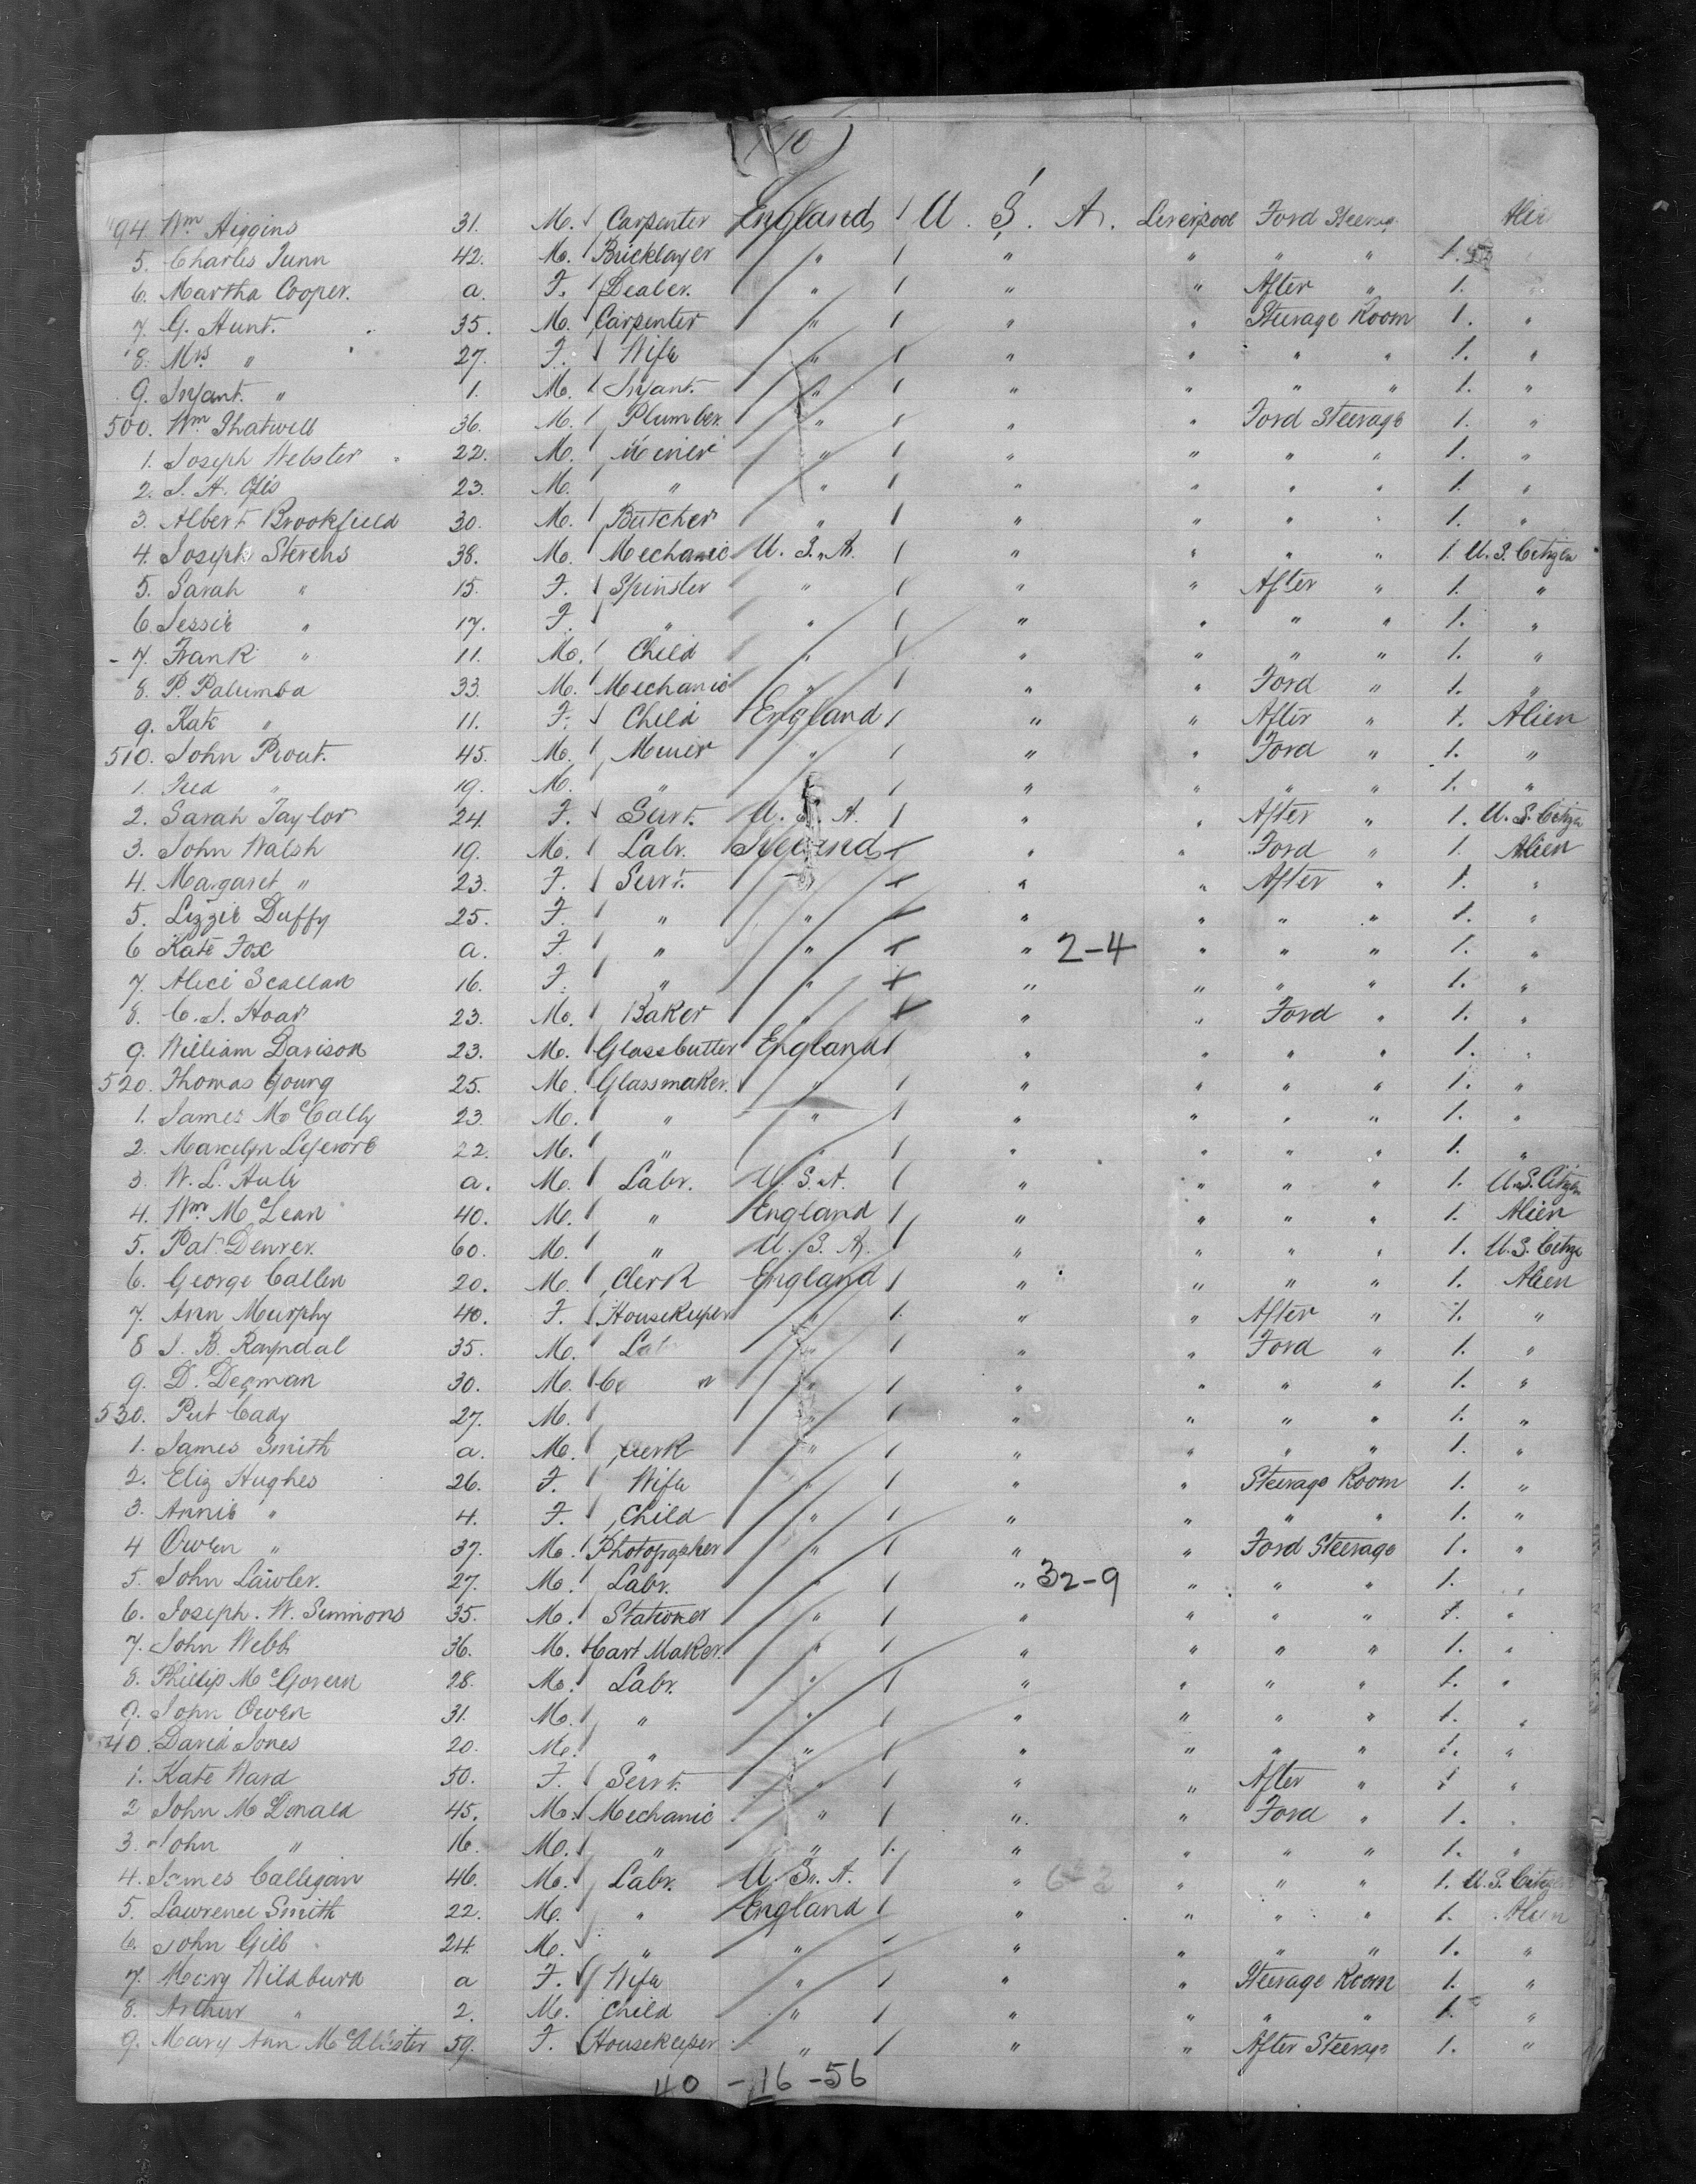 (10)
494. Wm Higgins 31. M. Carpenter England U. S. A. Liverpool Ford Steerag. Alie
5. Charles Tunn 42. M. Bricklayer " " " " " 1.
6. Martha Cooper. a. F. Dealer. " " " After " 1.
7. G. Hunt. 35. M. Carpenter " " " Steerage Room 1. "
8. Mrs " 27. F. Wife " " " " " 1. "
9. Infant. " 1. M. Infant. " " " " " 1. "
500. Wm Thatwell 36. M. Plumber. " " " Ford Steerage 1. "
1. Joseph Webster 22. M. Miner " " " " " 1. "
2. J. H. 23. M. " " " " " " 1. "
3. Albert Brookfield 30. M. Butcher " " " " " 1. "
4. Joseph Stevens 38. M. Mechanic U. S. A. " " " " 1. U. S. Citizen
5. Sarah " 15. F. Spinster " " " After " 1. "
6. Jessie " 17. F. " " " " " " 1. "
7. Frank " 11. M. Child " " " " " 1. "
8. P. Palumba 33. M. Mechanic " " " Ford " 1. "
9. Kate " 11. F. Child England " " After " 1. Alien
510. John Prout. 45. M. Miner " " " Ford " 1. "
1. Fred " 19. M. " " " " " " 1. "
2. Sarah Taylor 24. F. Servt. U. S. A. " " After " 1. U. S. Citize
3. John Walsh 19. M. Labr. Ireland " " Ford " 1. Alien
4. Margaret " 23. F. Servt. " " " After " 1. "
5. Lizzie Duffy 25. F. " " " " " " 1. "
6 Kate Fox a. F. " " " 2-4 " " " 1. "
7. Alice Scallan 16. F. " " " " " " 1. "
8. C. J. Hoar 23. M. Baker " " " Ford " 1. "
9. William Davison 23. M. Glasscutter England " " " " 1. "
520. Thomas Young 25. M. Glassmaker. " " " " " 1. "
1. James McCally 23. M. " " " " " " 1. "
2. Marcelyn Lefevore 22. M. " " " " " " 1. "
3. W. L. Hule a. M. Labr. U. S. A. " " " " 1. U. S. Citizen
4. Wm McLean 40. M. " England " " " " 1. Alien
5. Pat Denver. 60. M. " U. S. A. " " " " 1. U. S. Citize
6. George Callen 20. M. Clerk England " " " " 1. Alien
7. Ann Murphy 40. F. Housekeeper " " " After " 1. "
8 J. B. Rayndal 35. M. Lab " " " Ford " 1. "
9. D. Degman 30. M. " " " " " 1. "
530. Pat Cady 27. M. " " " " " 1. "
1. James Smith a. M. Clerk " " " " " 1. "
2. Eliz Hughes 26. F. Wife " " " Steerage Room 1. "
3. Annie " 4. F. Child " " " " " 1. "
4 Owen " 37. M. Photographer " " " Ford Steerage 1. "
5. John Lawler. 27. M. Labr. " " 32-9 " " " 1. "
6. Joseph. W. Simmons 35. M. Stationer " " " " " 1. "
7. John Webb 36. M. Cart Maker. " " " " " 1. "
8. Phillip McGovern 28. M. Labr. " " " " " 1. "
9. John Owen 31. M. " " " " " " 1. "
540. David Jones 20. M. " " " " " " 1. "
1. Kate Ward 50. F. Servt. " " " After " 1 "
2 John McDonald 45. M. Mechanic " " " Ford " 1. "
3. John " 16. M. " " " " " " 1. "
4. James Calligan 46. M. Labr. U. S. A. " " " " 1. U. S. Citizen
5. Lawrence Smith 22. M. " England " " " " 1. Alien
6. John Gill 24 M. " " " " " " 1. "
7. Mary Wildburn a F. Wife " " " Steerage Room 1. "
8. Arthur " 2. M. Child " " " " " 1. "
9. Mary Ann McAlister 59. F. Housekeeper " " " After Steerage 1. "
40 - 16 - 56